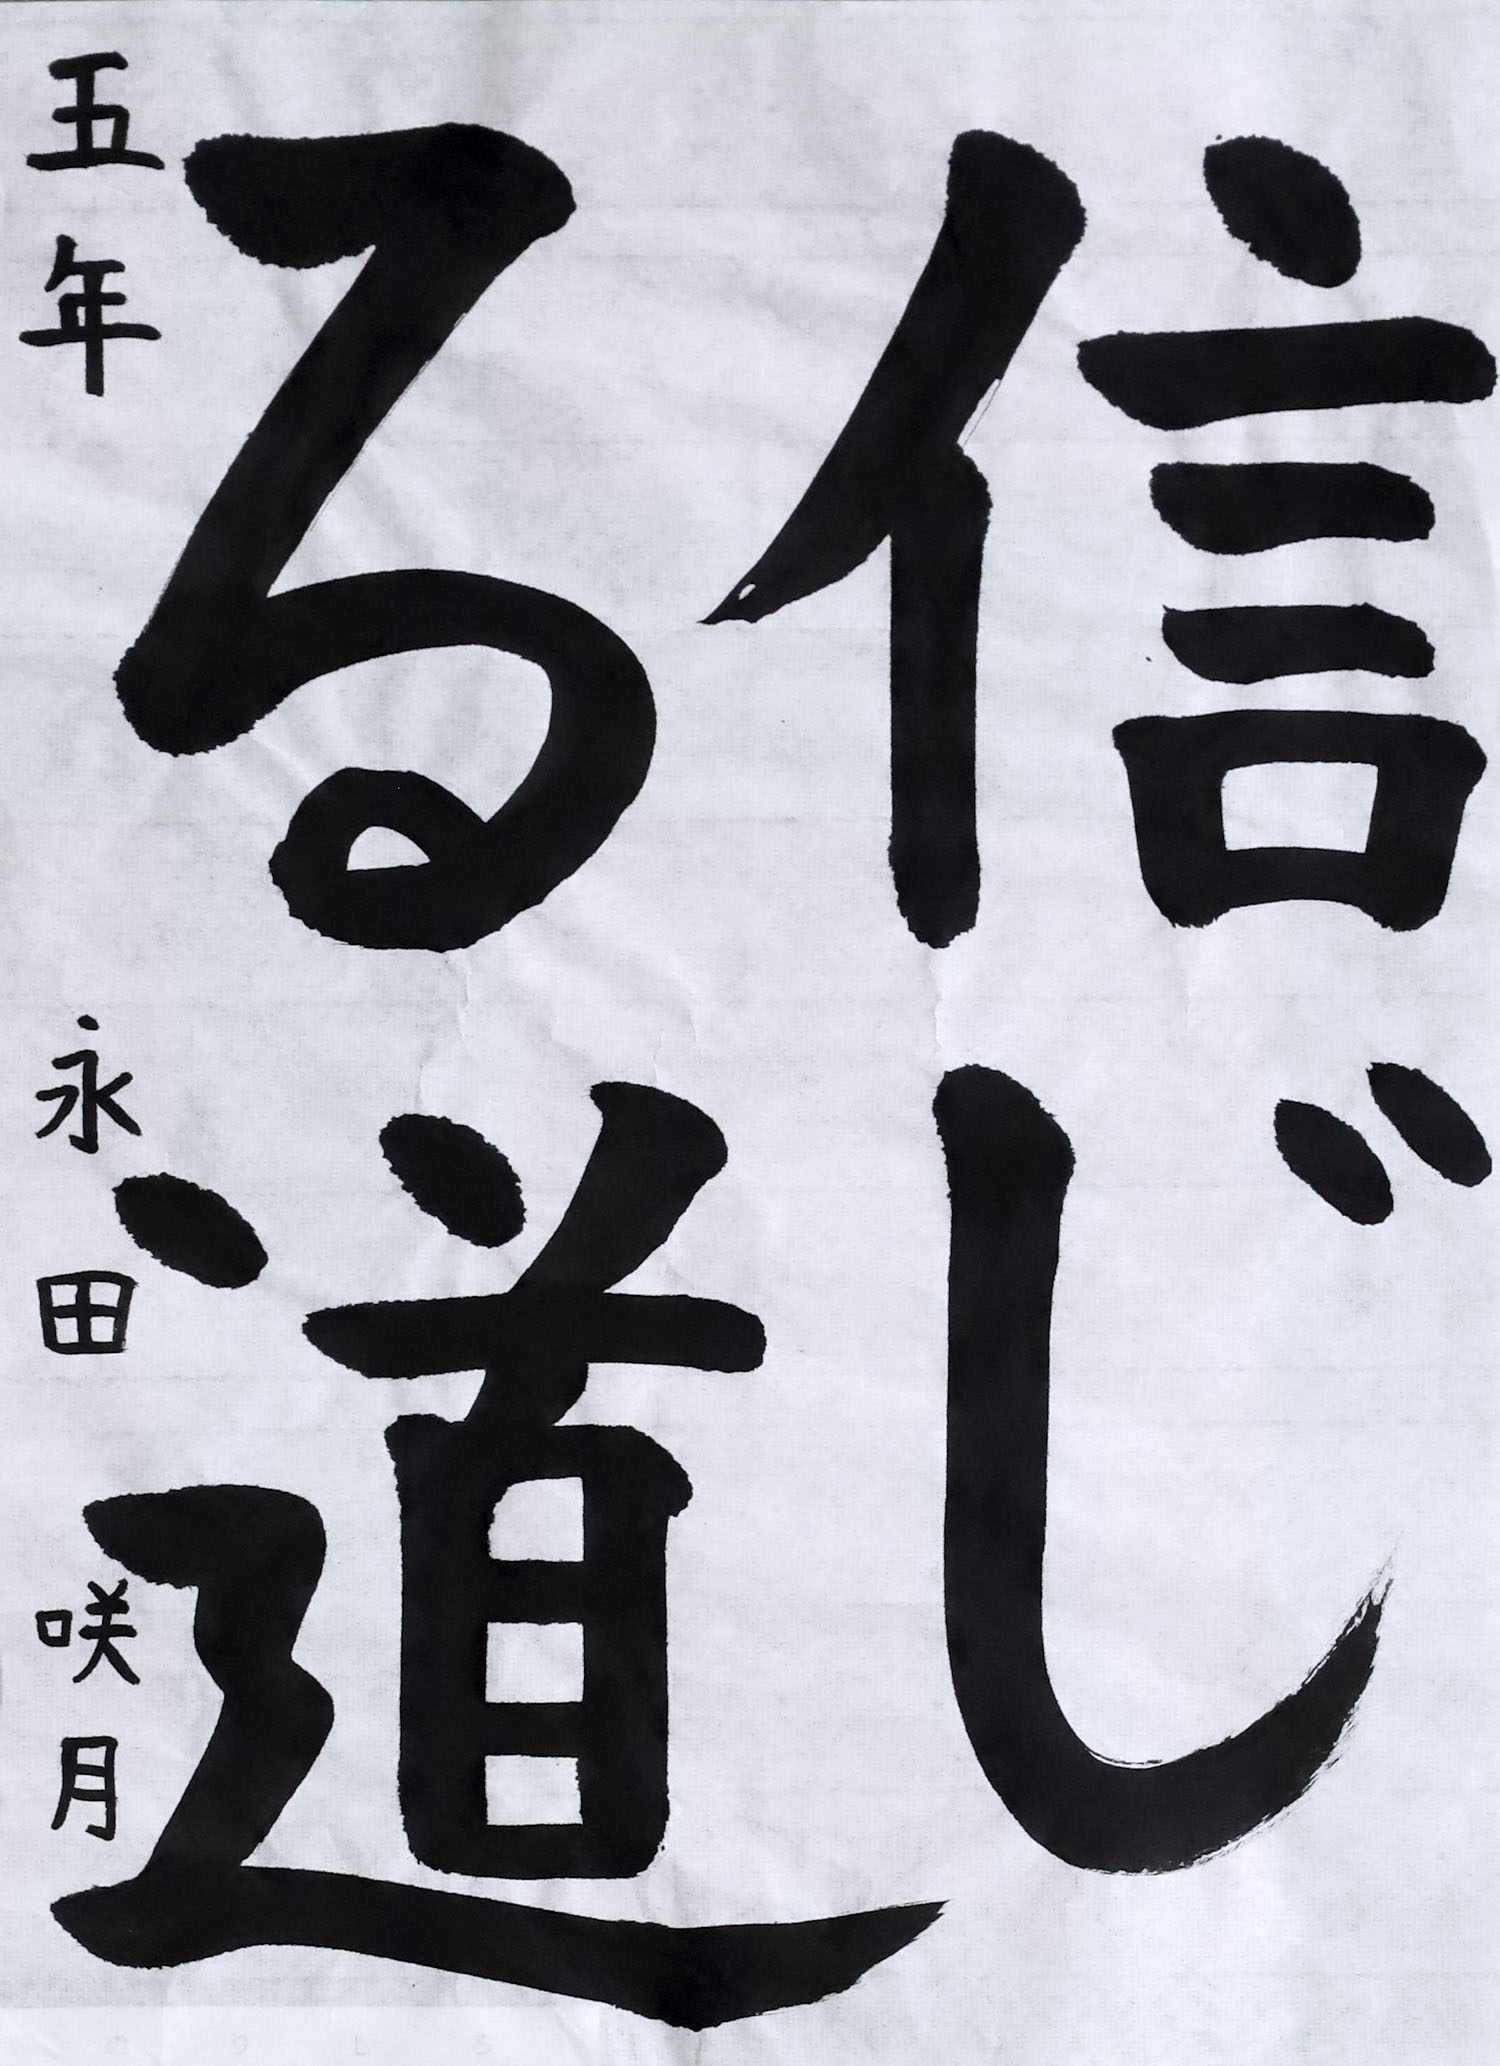 信じ
る道
五年 永田咲月